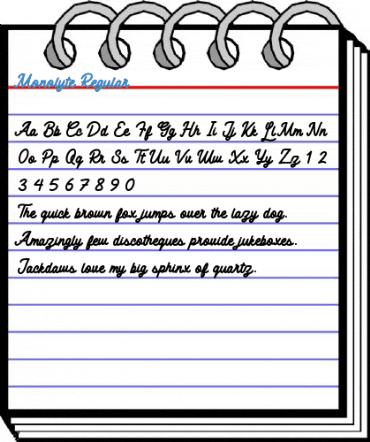 Monolyte Regular
Aa Bb Cc Dd Ee Ff Gg Hh Ii Jj Kk Ll Mm Nn
Oo Pp Qq Rr Ss Tt Uu Vv Ww Xx Yy Zz 1 2
3 4 5 6 7 8 9 0
The quick brown fox jumps over the lazy dog.
Amazingly few discotheques provide jukeboxes.
Jackdaws love my big sphinx of quartz.